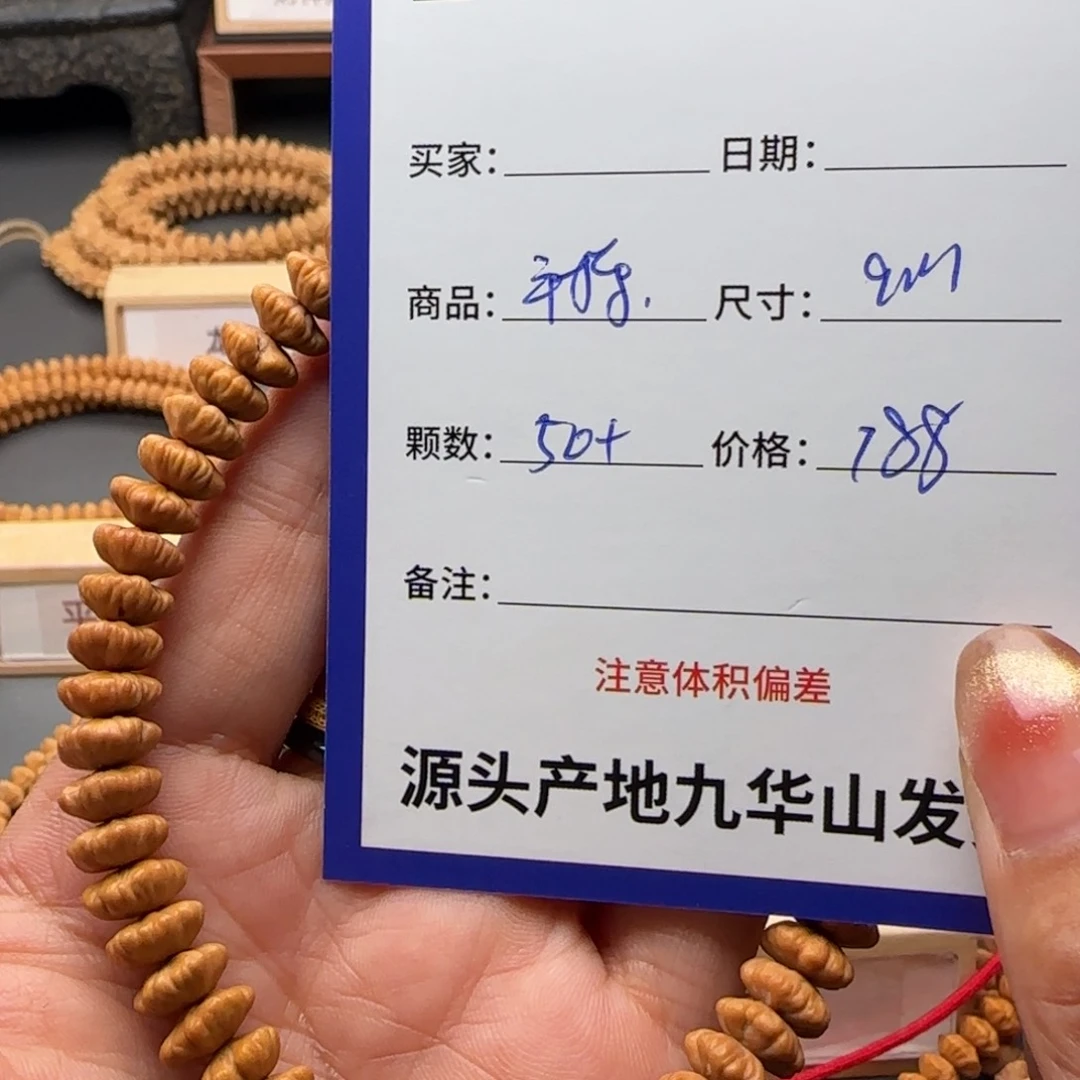 买家： 日期：
商品： 尺寸：
颗数：50+ 价格：788
备注：
注意体积偏差
源头产地九华山发